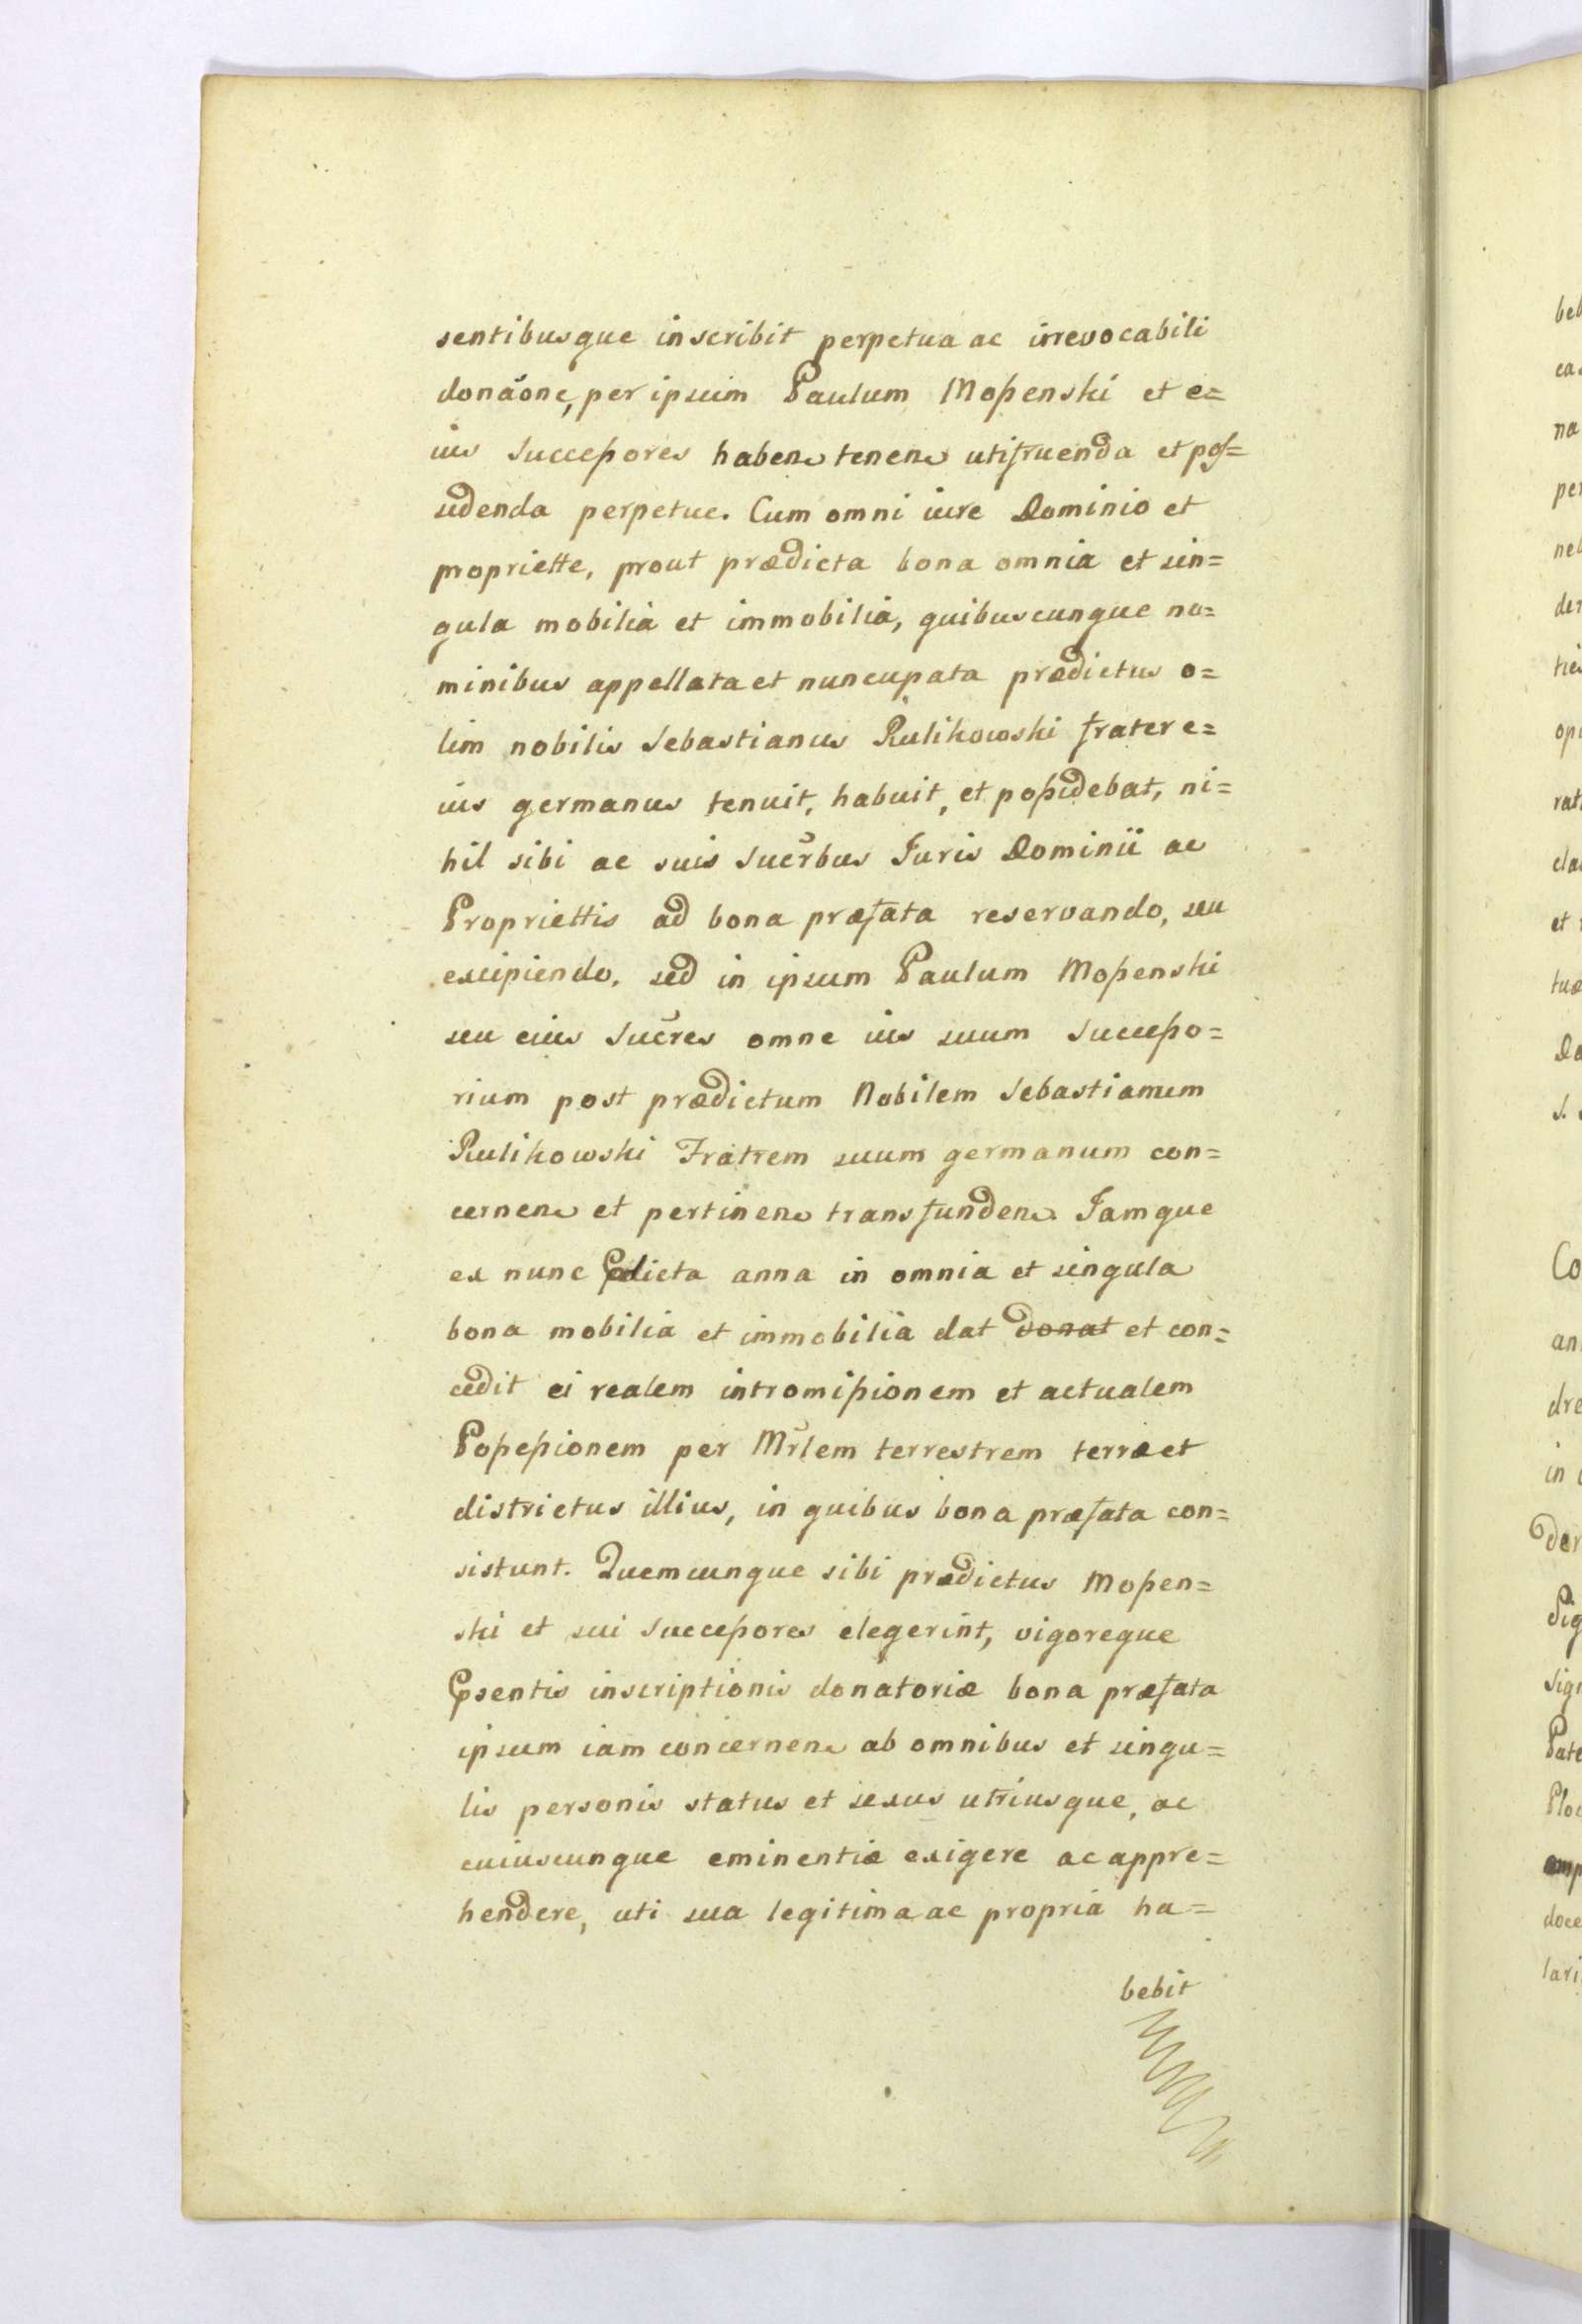 sentibusque inscribit perpetua ac irrevocabili
donãone, per ipsum Paulum Moßenski et e=
ius Succeßores habene tenene utifruenda et pos=
sidenda perpetue. Cum omni iure Dominio et
propriette, prout prædicta bona omnia et sin=
gula mobilia et immobilia, quibuscunque no=
minibus appellata et nuncupata prædictus o=
lim nobilis Sebastianus Rulikowski frater e=
ius germanus tenuit, habuit, et poßidebat, ni=
hil sibi ac suis Sucr̃bus Juris Dominii ac
Propriettis ad bona præfata reservando, seu
excipiendo, sed in ipsum Paulum Moßenski
seu eius Sucr̃es omne ius suum Succeßo=
rium post prædictum Nobilem Sebastianum
Rulikowski Fratrem suum germanum con=
cernene et pertinene transfundene. Jamque
ex nunc Pdicta anna in omnia et singula
bona mobilia et immobilia dat donat et con=
cedit ei realem intromißionem et actualem
Poßeßionem per Mr̃lem terrestrem terræ et
districtus illius, in quibus bona præfata con=
sistunt. Quemcunque sibi prædictus Moßen=
ski et sui Succeßores elegerint, vigoreque
Psentis inscriptionis donatoriæ bona præfata
ipsum iam concernene ab omnibus et singu=
lis personis status et sexus utriusque, ac
cuiuscunque eminentiæ exigere ac appre=
hendere, uti sua legitima ac propria ha=
bebit
beb
na
per
neb
der
rat
et
Co
an
dre
in
der
Sig
sign
Pate
Ploc
doce
lari